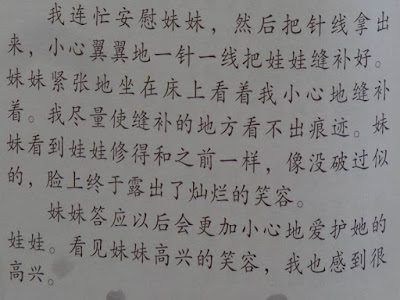 我连忙安慰妹妹，然后把针线拿出
来，小心翼翼地一针一线把娃娃缝补好。
妹妹紧张地坐在床上看着我小心地缝补
着。我尽量使缝补的地方看不出痕迹。妹
妹看到娃娃修得和之前一样，像没破过似
的，脸上终于露出了灿烂的笑容。
妹妹答应以后会更加小心地爱护她的
娃娃。看见妹妹高兴的笑容，我也感到很
高兴。